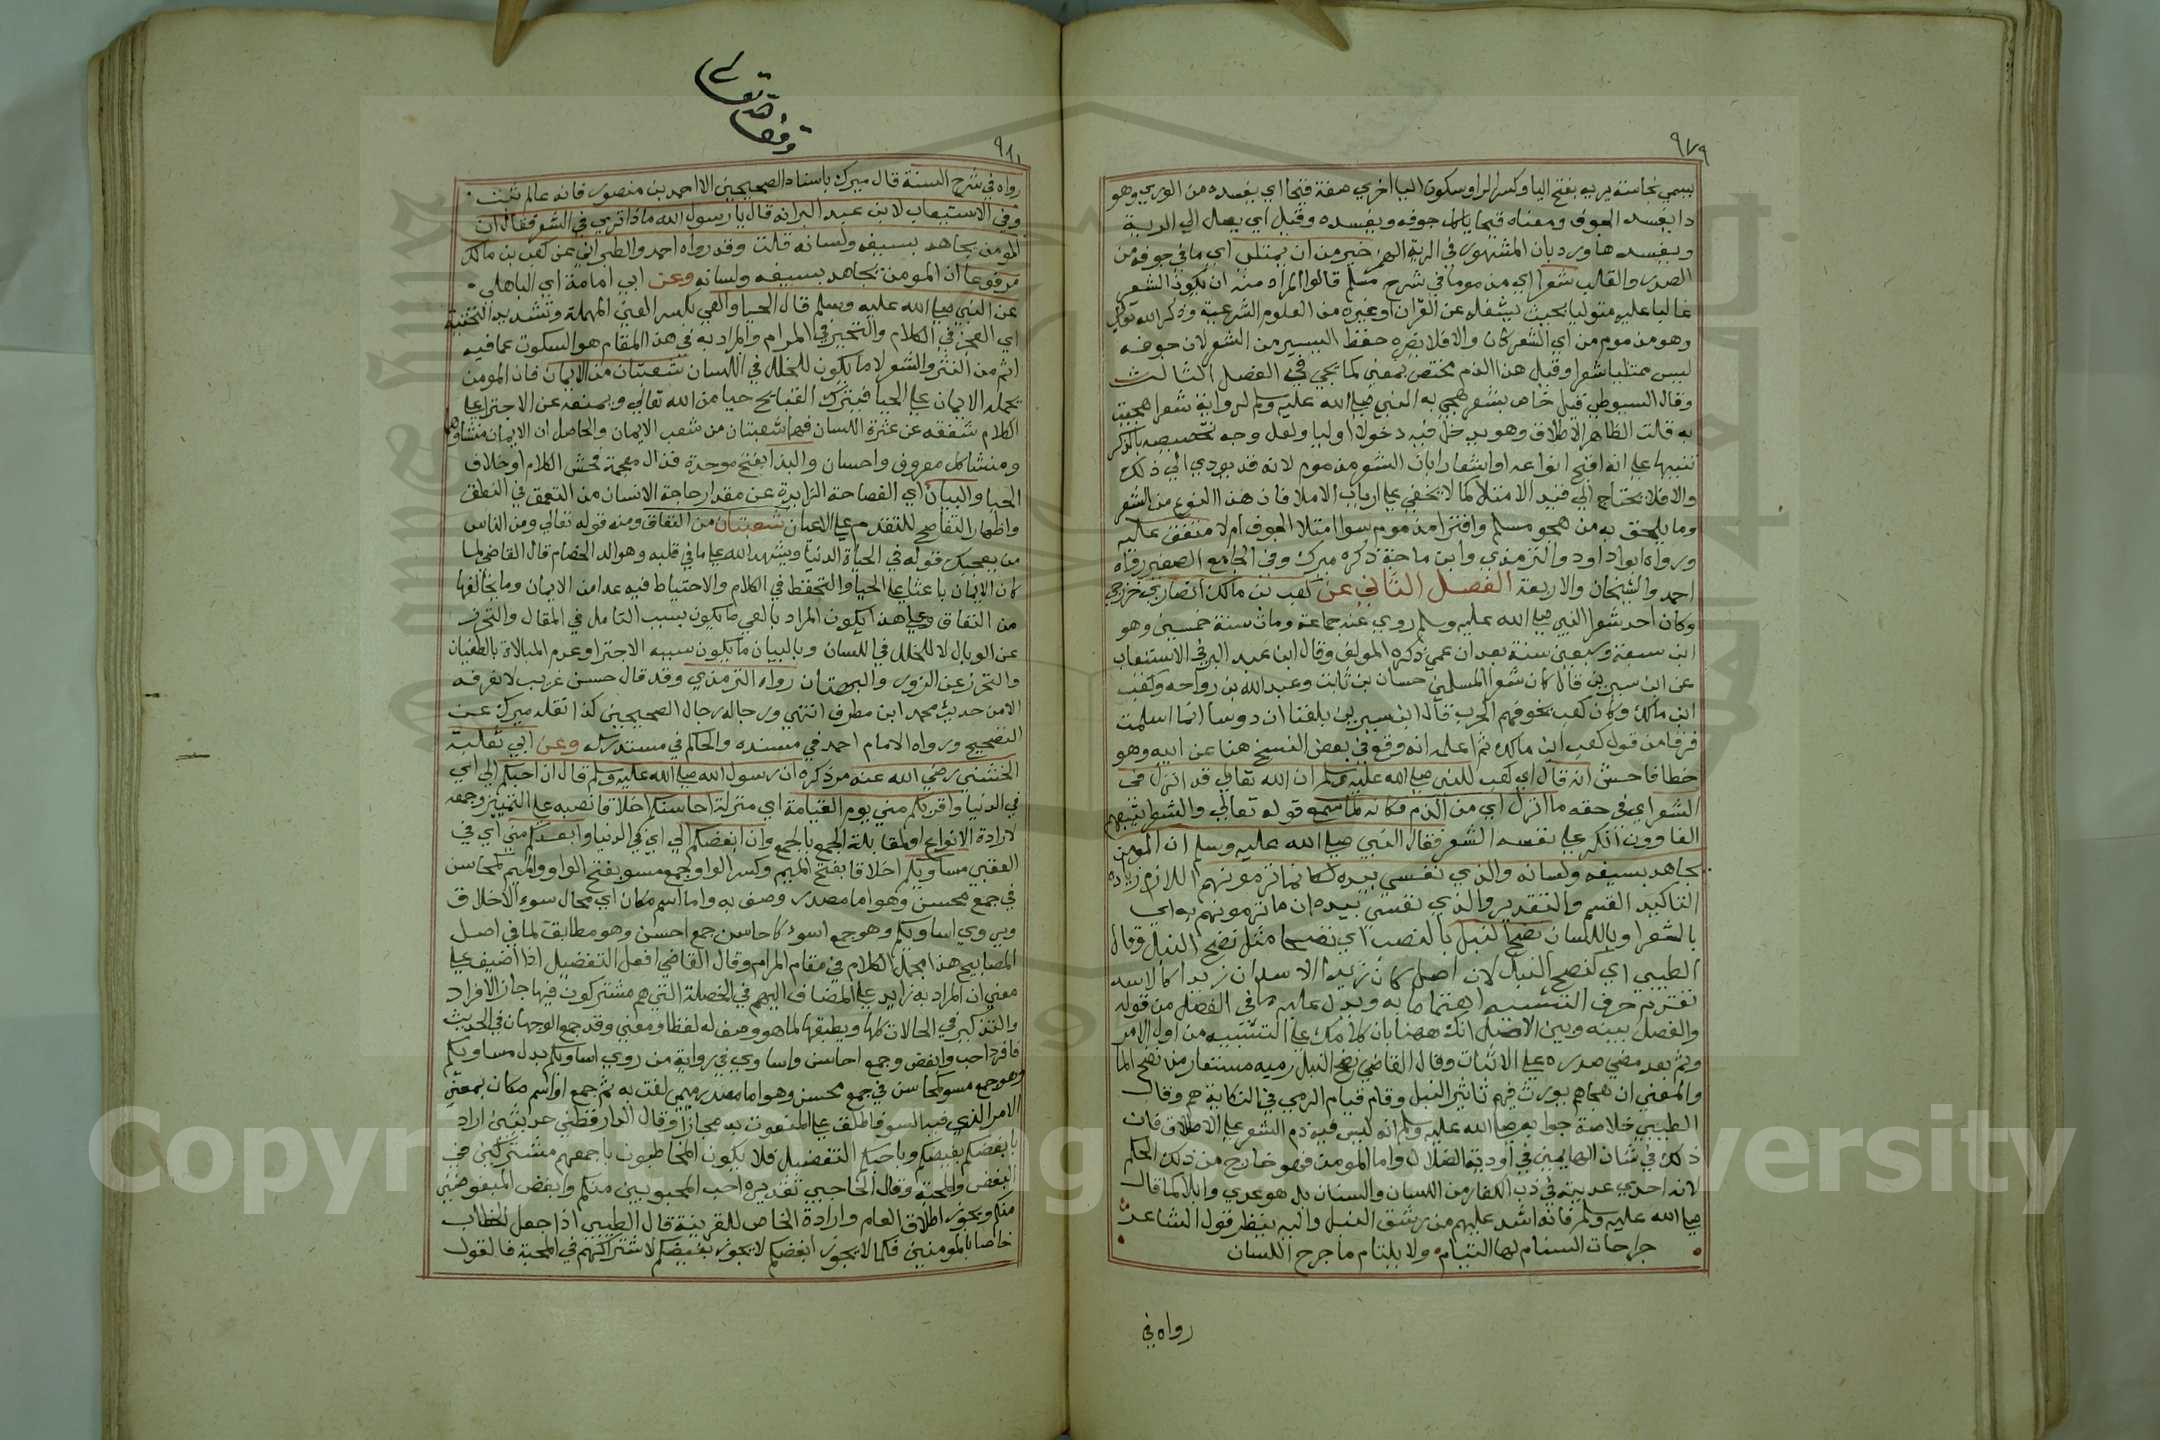 ٩٧٩
يسمى نجاسة يريه بفتح اليا وكسر الرا وسكون اليا اخرى صفة قيحا اي يفسده من الوري وهو
دا يفسد الجوف ومعناه قيحا ياكل جوفه ويفسده وقيل اي يصل الى الرية
ويفسدها ورد بان المشهور في الرية الهمز خير من ان يمتلئ اي ما في جوفه من
الصدر والقالب شعرا اي مذموما في شرح مسلم قالوا المراد منه ان يكون الشعر
غالبا عليه متوليا بحيث يشغله عن القرآن او غيره من العلوم الشرعية وذكر الله تعالى
وهو مذموم من اي الشعر كان والا فلا يضره حفظ اليسير من الشعر لان جوفه
ليس ممتليا شعرا وقيل هذا الذم مختص بمعنى كما يجي في الفصل الثالث
وقال السيوطي قيل خاص بشعر هجي به النبي صلى الله عليه وسلم لرواية شعرا هجيت
به قلت الظاهر الاطلاق وهو يدخل فيه دخولا اوليا ولعل وجه تخصيصه بالذكر
تنبيها على انه اقبح انواعه او اشعارا بان الشعر مذموم لانه قد يودي الى ذلك
والا فلا يحتاج الى قيد الامتلا كما لا يخفى على ارباب الاملا فان هذا النوع من الشعر
وما يلحق به من هجو مسلم وافترا مذموم سوا امتلا الجوف ام لا متفق عليه
ورواه ابو داود والترمذي وابن ماجة ذكره ميرك وفي الجامع الصغير رواه
احمد والشيخان والاربعة الفصل الثاني عن كعب بن مالك انصاري خزرجي
وكان احد شعرا النبي صلى الله عليه وسلم روى عنه جماعة ومات سنة خمسين وهو
ابن سبعة وسبعين سنة بعد ان عمي ذكره المولف وقال ابن عبد البر في الاستيعاب
عن ابن سيرين قال كان شعرا المسلمين حسان بن ثابت وعبد الله بن رواحه وكعب
ابن مالك وكان كعب يخوفهم الحرب قال ابن سيرين بلغنا ان دوسا انما اسلمت
فرقا من قول كعب ابن مالك ثم اعلم انه وقع في بعض النسخ هنا عن ابيه وهو
خطا فاحش انه قال اي كعب للنبي صلى الله عليه وسلم ان الله تعالى قد انزل في
الشعر اي في حقه ما انزل اي من الذم فكانه لما سمع قوله تعالى والشعرا يتبعهم
الغاوون انكر على نفسه الشعر فقال النبي صلى الله عليه وسلم ان المومن
يجاهد بسيفه ولسانه والذي نفسي بيده لكانما ترمونهم اللازم زيادة
التاكيد القسم والتقدير والذي نفسي بيده ان ما ترمونهم به اي
بالشعر او باللسان نضح النبل بالنصب اي نضحا مثل نضح النبل وقال
الطيبي اي كنضح النبل لان اصل كان زيدا الاسد ان زيدا كالاسد
تقديم حرف التشبيه اهتماما به ويدل عليه ما في الفصل من قوله
والفصل بينه وبين الاصل انك ههنا بان كلامك على التشبيه من اول الامر
وثم بعد مضي صدره على الاثبات وقال القاضي نضح النبل رميه مستعار من نضح الما
والمعنى ان هجاهم يورث فيهم تاثير النبل وقام قيام الرمي في النكاية بهم وقال
الطيبي خلاصة جوابه صلى الله عليه وسلم انه ليس فيه ذم الشعر على الاطلاق فان
ذلك في شان الهايمين في اودية الضلال واما المومن فهو خارج من ذلك الحكم
لانه احدى عدتيه في ذب الكفار من اللسان والسنان بل هو عدي وابلا كما قال
صلى الله عليه وسلم فانه اشد عليهم من رشق النبل واليه ينظر قول الشاعر
جراحات السنام لها التيام ولا يلتام ما جرح اللسان
رواه في
وقف لله تعالى
٩٨٠
رواه في شرح السنة قال ميرك باسناد الصحيحين الا احمد بن منصور فانه عالم ثبت
وفي الاستيعاب لابن عبد البر انه قال يا رسول الله ماذا ترى في الشعر فقال ان
المومن يجاهد بسيفه ولسانه قلت وقد رواه احمد والطبراني عن كعب بن مالك
مرفوعا ان المومن يجاهد بسيفه ولسانه وعن ابي امامة اي الباهلي
عن النبي صلى الله عليه وسلم قال الحيا والعي بكسر العين المهملة وتشديد التحتية
اي العجز في الكلام والتحير في المرام والمراد به في هذا المقام هو السكوت عما فيه
اثم من النثر والشعر لا ما يكون للخلل في اللسان شعبتان من الايمان فان المومن
يحمله الايمان على الحيا فيترك القبايح حيا من الله تعالى ويمنعه عن الاجترا على
الكلام شفقة عن عثرة اللسان فهما شعبتان من شعب الايمان والحاصل ان الايمان منشاوهما
ومنشا كل معروف واحسان والبذا بفتح موحدة فذال معجمة فحش الكلام او خلاف
الحيا والبيان اي الفصاحة الزايدة عن مقدار حاجة الانسان من التعمق في النطق
واظهار التفاصح للتقدم على الاعيان شعبتان من النفاق ومنه قوله تعالى ومن الناس
من يعجبك قوله في الحياة الدنيا ويشهد الله على ما في قلبه وهو الد الخصام قال القاضي لما
كان الايمان باعثا على الحيا والتحفظ في الكلام والاحتياط فيه عدا من الايمان وما يخالفها
من النفاق وعلى هذا يكون المراد بالعي ما يكون بسبب التامل في المقال والتحرز
عن الوبال لا للخلل في اللسان وبالبيان ما يكون سببه الاجترا وعدم المبالاة بالطغيان
والتحرز عن الزور والبهتان رواه الترمذي وقد قال حسن غريب لا نعرفه
الا من حديث محمد ابن مطرف انتهى ورجاله رجال الصحيحين كذا نقله ميرك عن
التصحيح ورواه الامام احمد في مسنده والحاكم في مستدركه وعن ابي ثعلبة
الخشني رضي الله عنه مر ذكره ان رسول الله صلى الله عليه وسلم قال ان احبكم الي اي
في الدنيا واقربكم مني يوم القيامة اي منزلة احاسنكم اخلاقا نصبه على التمييز وجمعه
لارادة الانواع او لمقابلة الجمع بالجمع وان ابغضكم الي اي في الدنيا وابعدكم مني اي في
العقبى مساويكم اخلاقا بفتح الميم وكسر الواو جمع مسو بفتح الواو والميم لمحاسن
في جمع محسن وهو اما مصدر وصف به واما اسم مكان اي محال سوء الاخلاق
ويروى اساويكم وهو جمع اسوء كاحاسن جمع احسن وهو مطابق لما في اصل
المصابيح هذا مجمل الكلام في مقام المرام وقال القاضي افعل التفضيل اذا اضيف على
معنى ان المراد به زايد على المضاف اليهم في الخصلة التي هم مشتركون فيها جاز الافراد
والتذكير في الحالات كلها ويطبقها لما هو وصف له لفظا ومعنى وقد جمع الوجهان في الحديث
فافرد احب وابغض وجمع احاسن واساوي في رواية من روى اساويكم بدل مساويكم
وهو جمع مسو لمحاسن في جمع محسن وهو اما مصدر ميمي نعت به ثم جمع او اسم مكان بمعنى
الامر الذي فيه السو فاطلق على المنعوت به مجازا وقال الدارقطني حديثي اراد
بابغضكم بغيضكم وباحبكم التفضيل فلا يكون المخاطبون باجمعهم مشتركين في
البغض والمحبة وقال الحاجبي تقديره احب المحبوبين منكم وابغض المبغوضين
منكم ويجوز اطلاق العام وارادة الخاص للقرينة قال الطيبي اذا جعل الخطاب
خاصا بالمومنين فكما لا يجوز ابغضكم لا يجوز بغيضكم لاشتراكهم في المحبة فالقول
Copyright © King Saud University